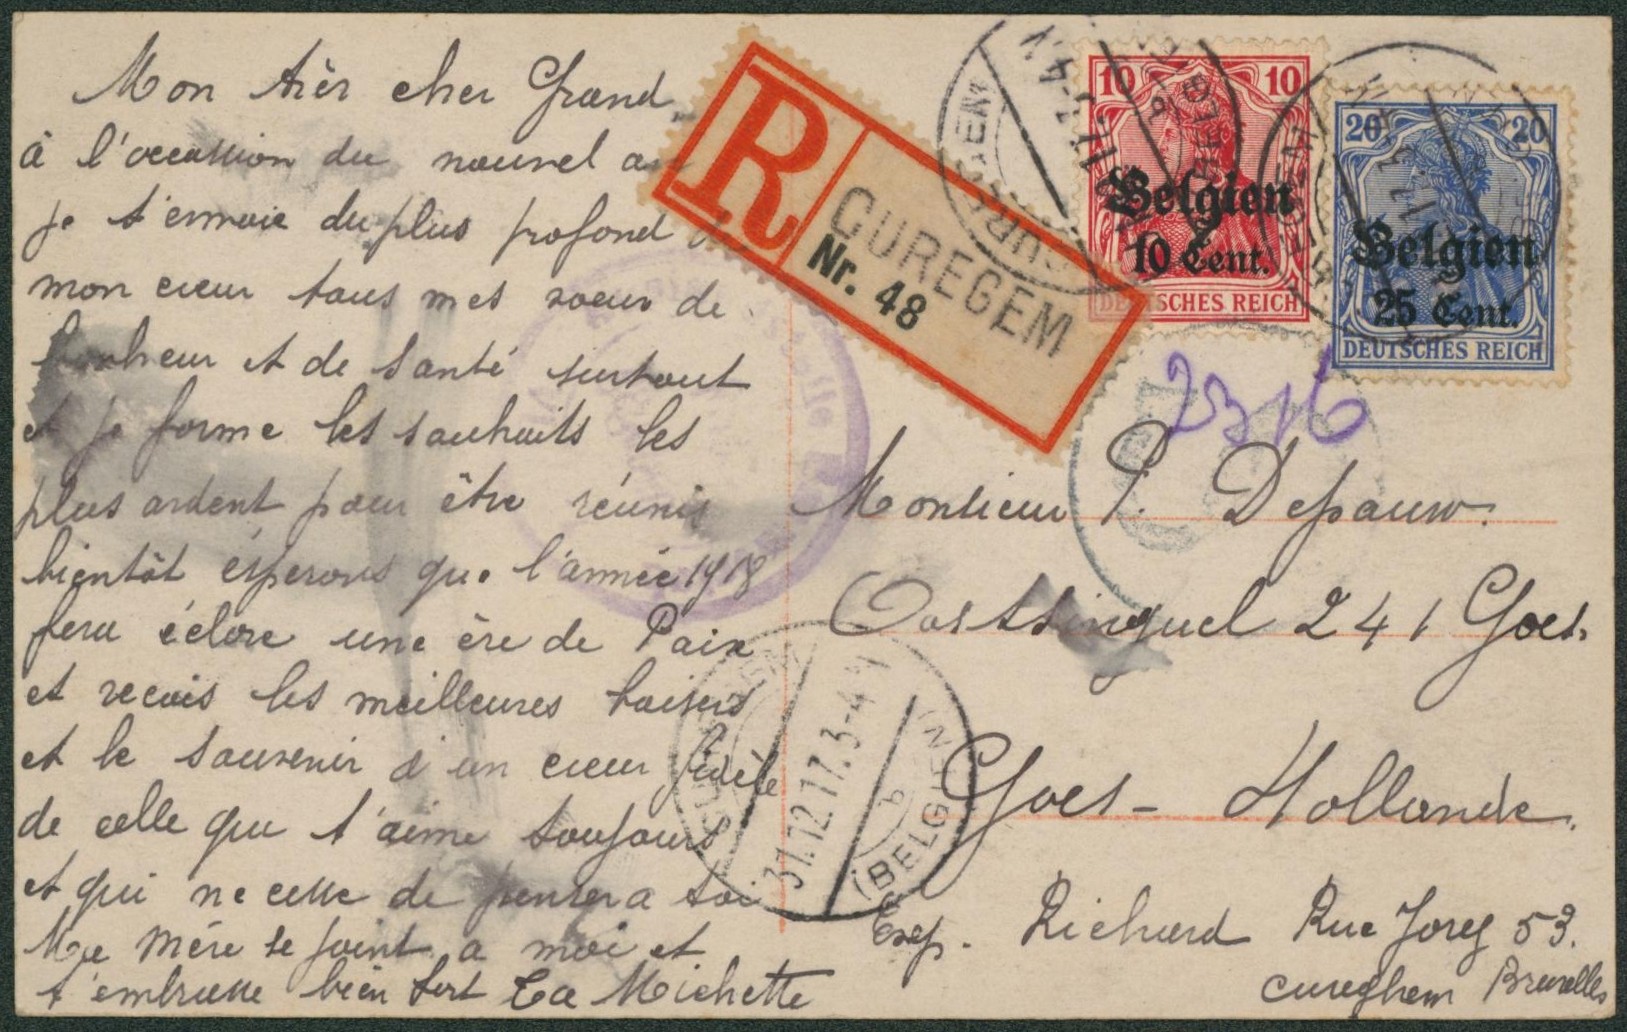 Mon très cher Grand
à l'occassion du nouvel an
je t'envoie du plus profond
mon cœur tous mes voeux de
bonheur et de santé surtout
et je forme les souhaits les
plus ardent pour être réunis
bientôt espérons que l'année 1918
fera éclore une ère de Paix
et recois les meilleures baisers
et le souvenir d'un cœur fidèle
de celle qui t'aime toujours
et qui ne cesse de penser a toi
Me Mère se joint a moi et
t'embrasse bien fort Ta Michette
R
CUREGEM
Nr. 48
10 10
Belgien
10 Cent.
DEUTSCHES REICH
20 20
Belgien
25 Cent.
DEUTSCHES REICH
2316
Monsieur P. Depauw.
Oostsinguel 241 Goes.
Goes - Hollande.
Exp. Richard Rue Jorez 53.
Cureghem Bruxelles
31.12.17.3-4
b
(BELGIEN)